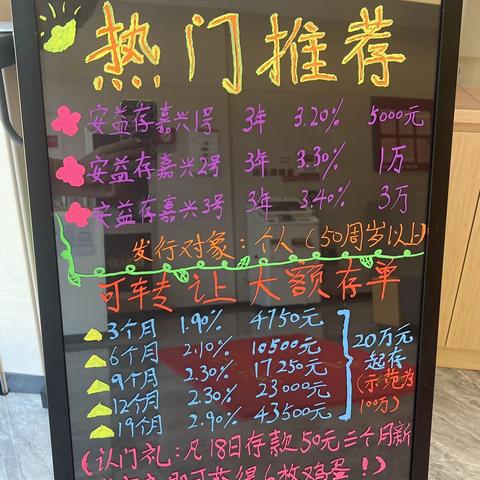 热门推荐
安益存嘉兴1号 3年 3.20% 5000元
安益存嘉兴2号 3年 3.30% 1万
安益存嘉兴3号 3年 3.40% 3万
发行对象：个人（50周岁以上）
可转让 大额存单
3个月 1.90% 4750元
6个月 2.10% 10500元
9个月 2.30% 17250元
12个月 2.30% 23000元
19个月 2.90% 43500元
20万元
起存
(示范为
100万)
(认门礼：凡18日存款50元三个月新
即可获得6枚鸡蛋！)